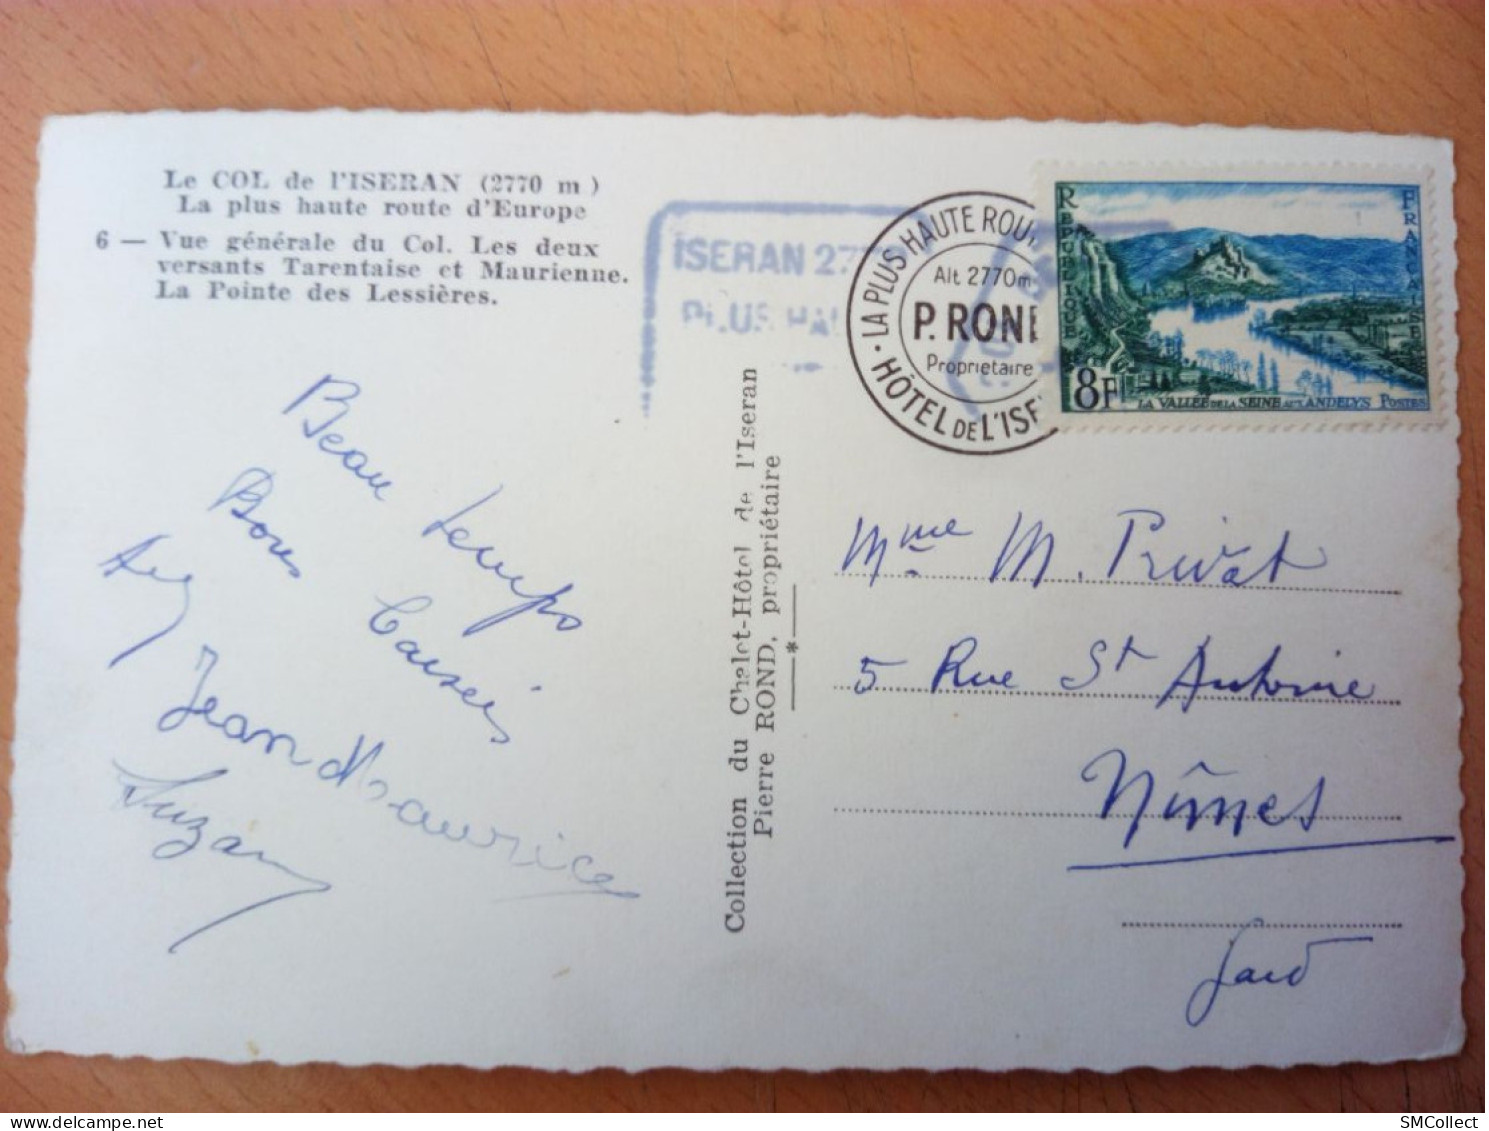 Le COL de l'ISERAN (2770 m)
La plus haute route d'Europe
6 — Vue générale du Col. Les deux
versants Tarentaise et Maurienne.
La Pointe des Lessières.
ISERAN 27
PLUS HAU
• LA PLUS HAUTE ROU
Alt. 2770m
P. ROND
Propriétaire
HÔTEL DE L'ISE
RÉPUBLIQUE FRANÇAISE
8F
LA VALLÉE DE LA SEINE AUX ANDELYS POSTES
Collection du Chalet-Hôtel de l'Iseran
Pierre ROND, propriétaire
—*—
Beau temps
Bons Baisers
Jean Maurice
Suzan
Mme M. Privat
5 Rue St Antoine
Nîmes
Gard
SMCollect